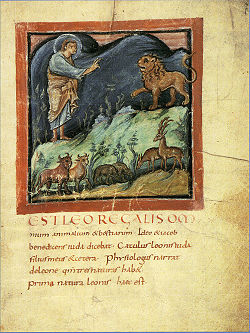 EST LEO REGALIS OM
nium animalium & bestiarum · Ideo & iacob
benedicens iuda dicebat · Catulus leonis iuda
filius meus & cetera · Physiologus narrat
de leone qui tres naturas hab&
prima natura leonis haec est